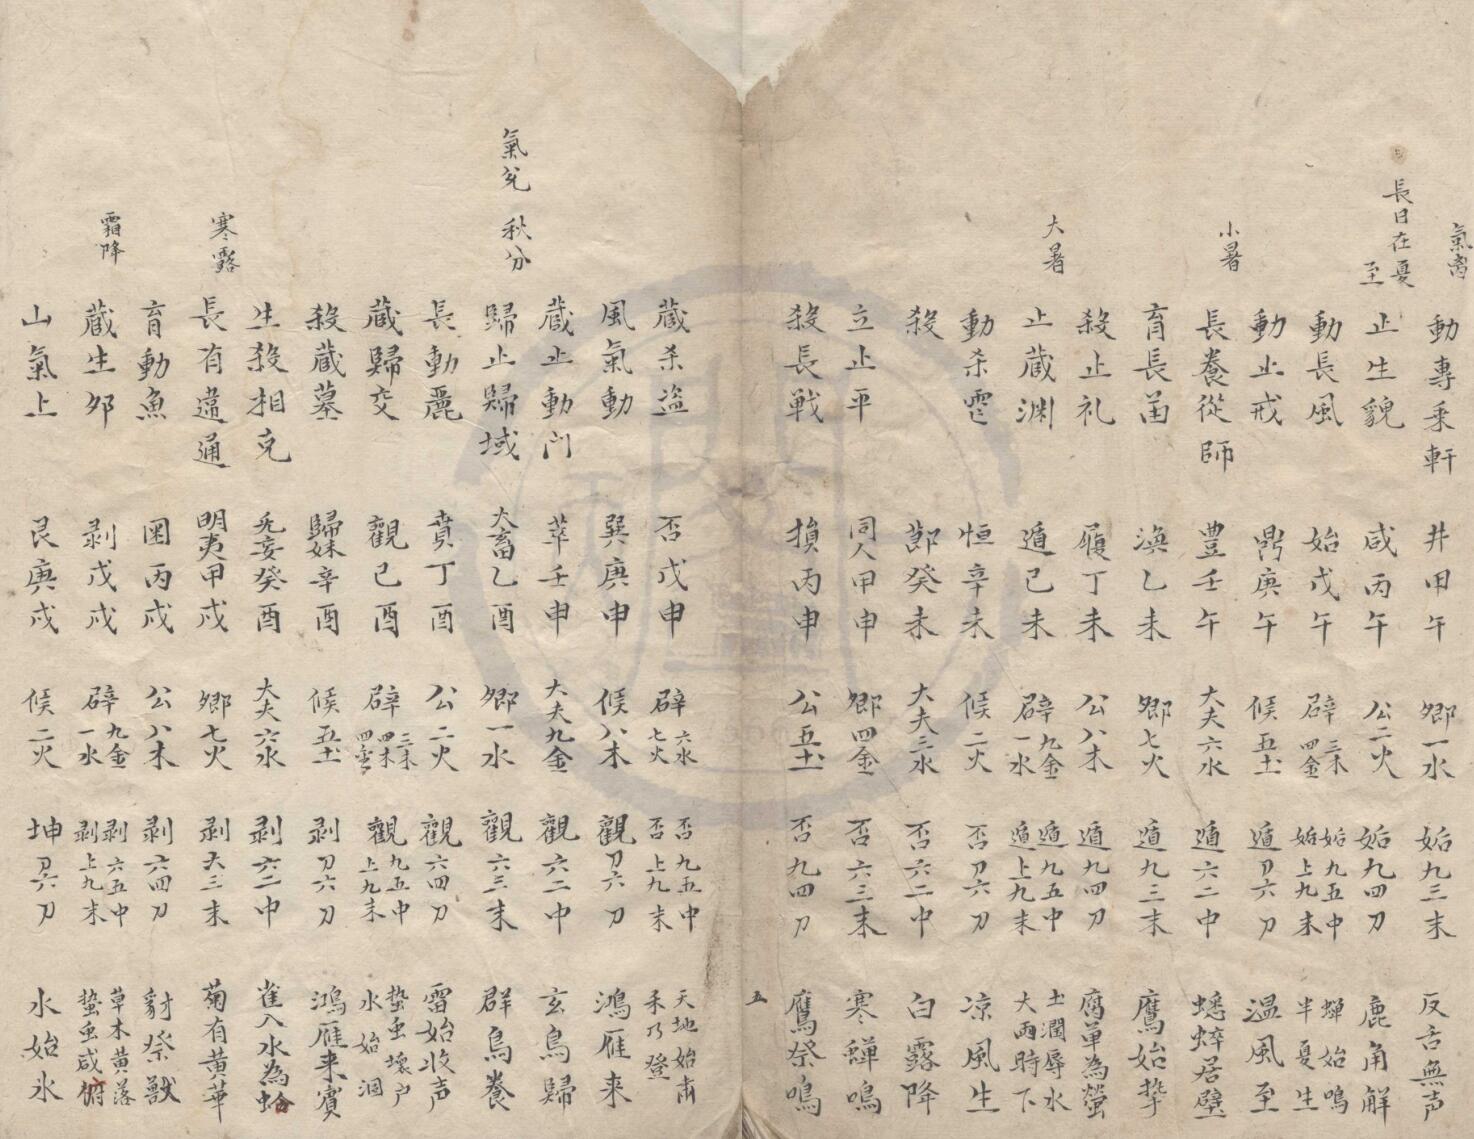 氣离
動專乘軒 井甲午 卿一水 姤九三末 反舌無声
長日在夏至
止生貌 咸丙午 公二火 姤九四刀 鹿角解
動長風 姤戊午 辟三木四金 姤九五中姤上九末 蟬始鳴半夏生
動止戒 鼎庚午 候五土 遁刀六刀 溫風至
小暑
長養從師 豐壬午 大夫六水 遁六二中 蟋蟀居壁
育長菌 渙乙未 卿七火 遁九三末 鷹始摯
殺止礼 履丁未 公八木 遁九四刀 腐草為螢
大暑
止蔵渊 遁己未 辟九金一水 遁九五中遁上九末 土潤辱水大雨時下
動杀雩 恒辛未 候二火 否刀六刀 凉風生
殺 莭癸未 大夫三水 否六二中 白露降
立止平 同人甲申 卿四金 否六三末 寒蟬鳴
殺長戦 損丙申 公五土 否九四刀 鷹祭鳴
五
蔵杀盗 否戊申 辟六水七火 否九五中否上九末 天地始肅禾乃登
風氣動 巽庚申 候八木 觀刀六刀 鴻雁来
蔵止動门 萃壬申 大夫九金 觀六二中 玄鳥歸
氣兊 秋分
歸止歸域 大畜乙酉 卿一水 觀六三末 群鳥養
長動麗 賁丁酉 公二火 觀六四刀 雷始收声
蔵歸交 觀己酉 辟三木四木四金 觀九五中上九末 蟄虫壞户水始涸
殺蔵墓 歸妹辛酉 候五土 剥刀六刀 鴻雁来賓
生殺相克 无妄癸酉 大夫六水 剥六二中 雀入水為蛤
寒露
長有違通 明夷甲戍 卿七火 剥六三末 菊有黄華
育動魚 困丙戍 公八木 剥六四刀 豺祭獸
霜降
蔵生夘 剥戊戍 辟九金一水 剥六五中剥上九末 草木黄落蟄虫咸俯
山氣上 艮庚戍 候二火 坤刀六刀 水始氷